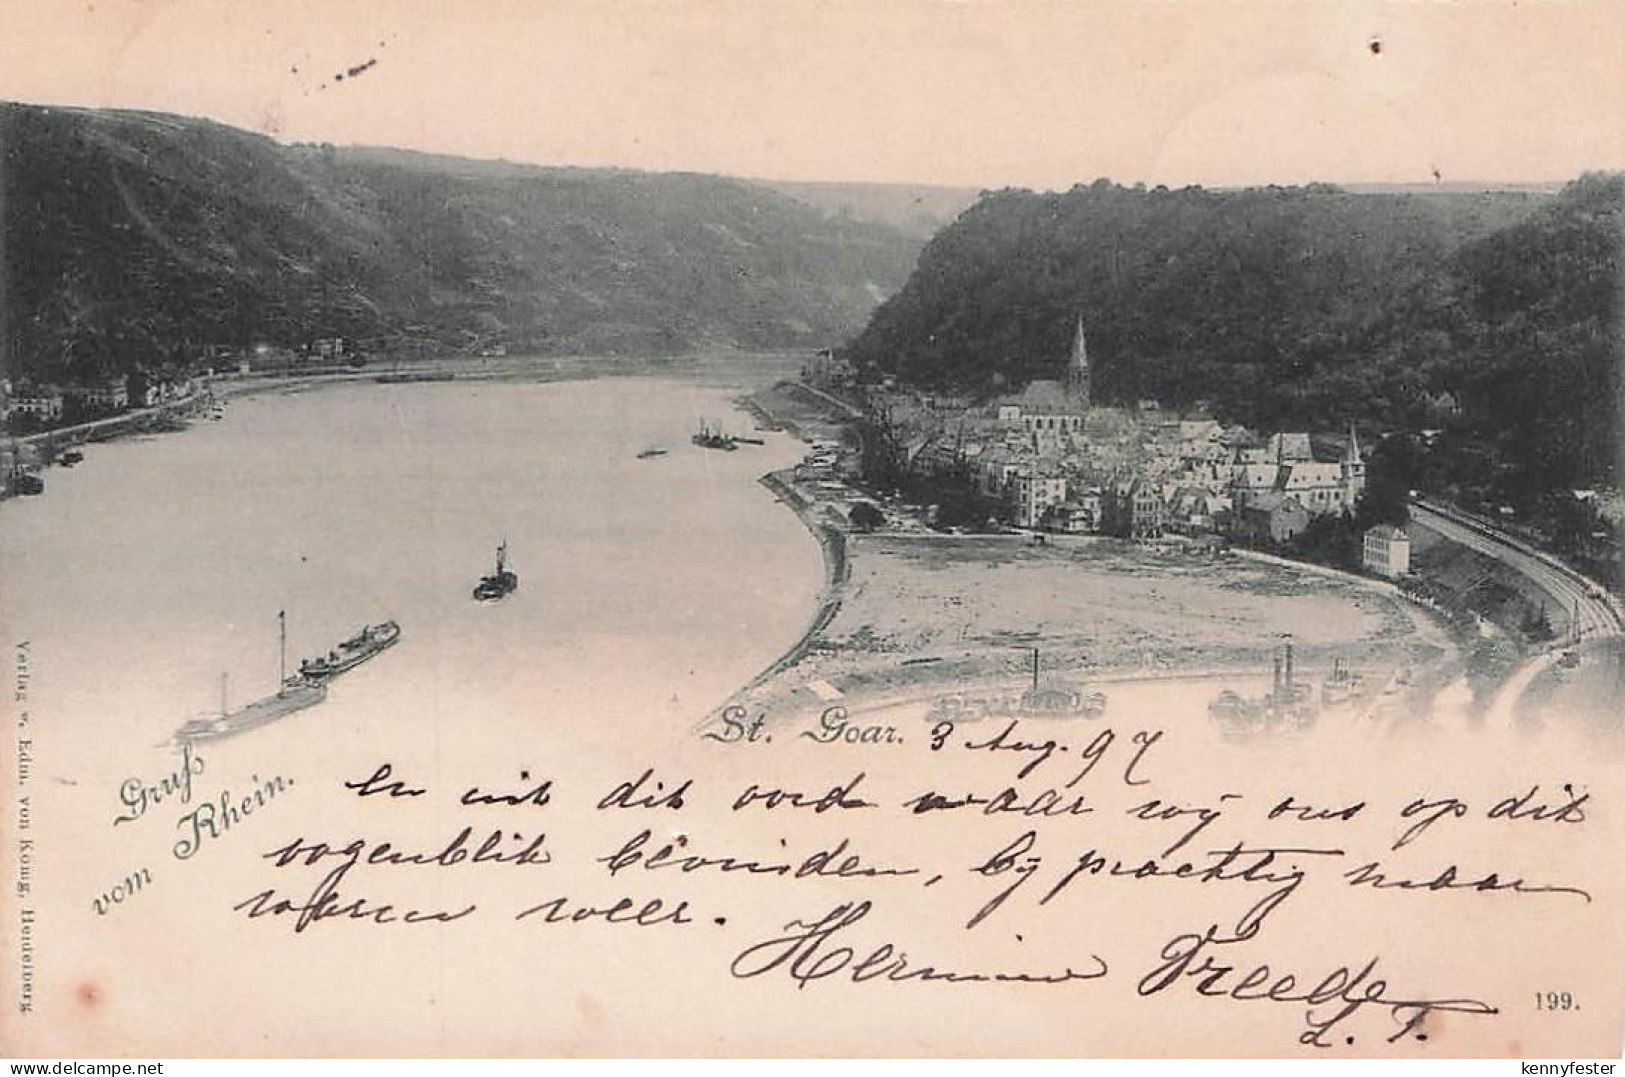 St. Goar. 3 Aug. 97
Gruß
vom Rhein.
En uit dit oord waar wij ons op dit
oogenblik bevinden, bij prachtig maar
warm weer.
Hermine Treede
L. T.
199.
Verlag v. Edm. von König, Heidelberg
www.delcampe.net
kennyfester